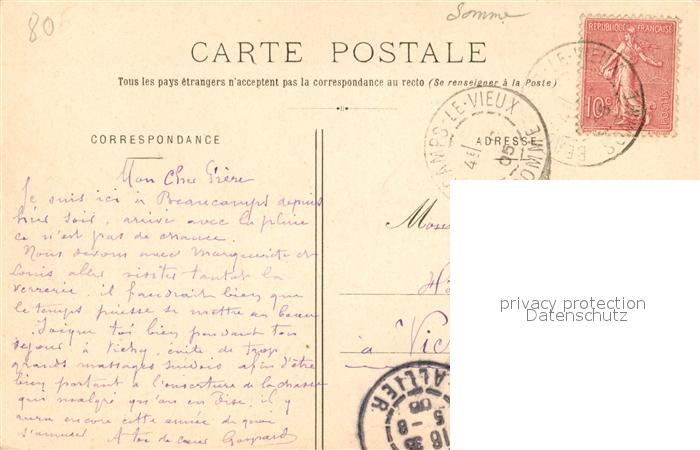 80
Somme
CARTE POSTALE
Tous les pays étrangers n'acceptent pas la correspondance au recto (Se renseigner à la Poste)
REPUBLIQUE FRANÇAISE
10c
POSTES
CORRESPONDANCE
ADRESSE
CAMPS-LE-VIEUX
SOMME
05
LE-VIEUX
Mon Cher Frère
Je suis ici à Beaucamps depuis
hier soir, arrivé avec la pluie
ce n'est pas de chance.
Nous devons avec Marguerite et
Louis aller visiter tantôt la
verrerie, il faudrait bien que
le temps puisse se mettre au beau
Soigne toi bien pendant ton
séjour à Vichy, évite de trop
grands massages suédois afin d'être
bien portant à l'ouverture de la chasse
qui malgré qu'on en dise, il y
aura encore cette année de quoi
s'amuser. A toi de cœur Gaspard
à Vic
privacy protection
Datenschutz
ALLIER